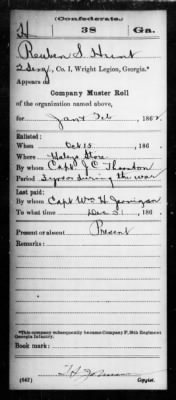 (Confederate.)
H 38 Ga.
Reuben S. Hunt
2 Sergt, Co. I, Wright Legion, Georgia.*
Appears on
Company Muster Roll
of the organization named above,
for Jany & Feb, 1862.
Enlisted:
When Oct 15, 186 .
Where Haleys Store
By whom Capt J. C. Thornton
Period 3 years or during the war
Last paid:
By whom Capt Wm H. Jernigan
To what time Dec 31, 186 .
Present or absent Present
Remarks:
*This company subsequently became Company F, 38th Regiment
Georgia Infantry.
Book mark:
(642) Copyist.